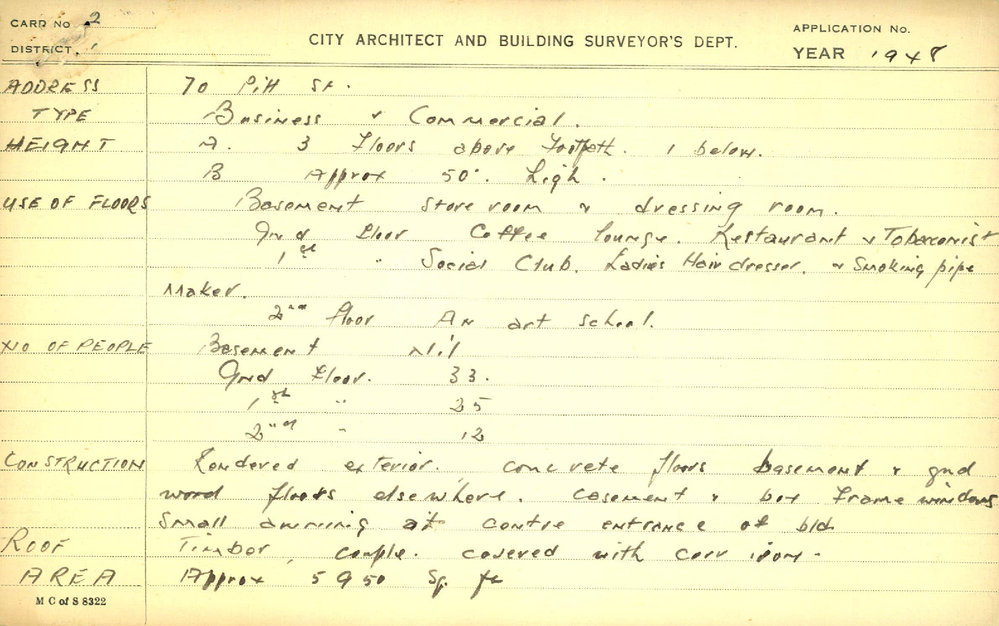 CARD No 2
DISTRICT. 1
CITY ARCHITECT AND BUILDING SURVEYOR'S DEPT.
APPLICATION No.
YEAR 1948
ADDRESS 70 Pitt St.
TYPE Business & Commercial.
HEIGHT A. 3 Floors above Footpath. 1 below.
B Approx 50'. high.
USE OF FLOORS Basement store room & dressing room.
Gnd floor Coffee lounge. Restaurant & Tobacconist
1st " Social Club. Ladies Hairdresser. & Smoking pipe
Maker.
2nd floor An art school.
NO OF PEOPLE Basement Nil
Gnd Floor. 33.
1st " 25
2nd " 12
CONSTRUCTION Rendered exterior. concrete floors basement & gnd
wood floors elsewhere. casement & box frame windows
small awning at centre entrance of bld
ROOF Timber, couple. covered with corr iron.
AREA Approx 5950 Sq. ft
M C of S 8322